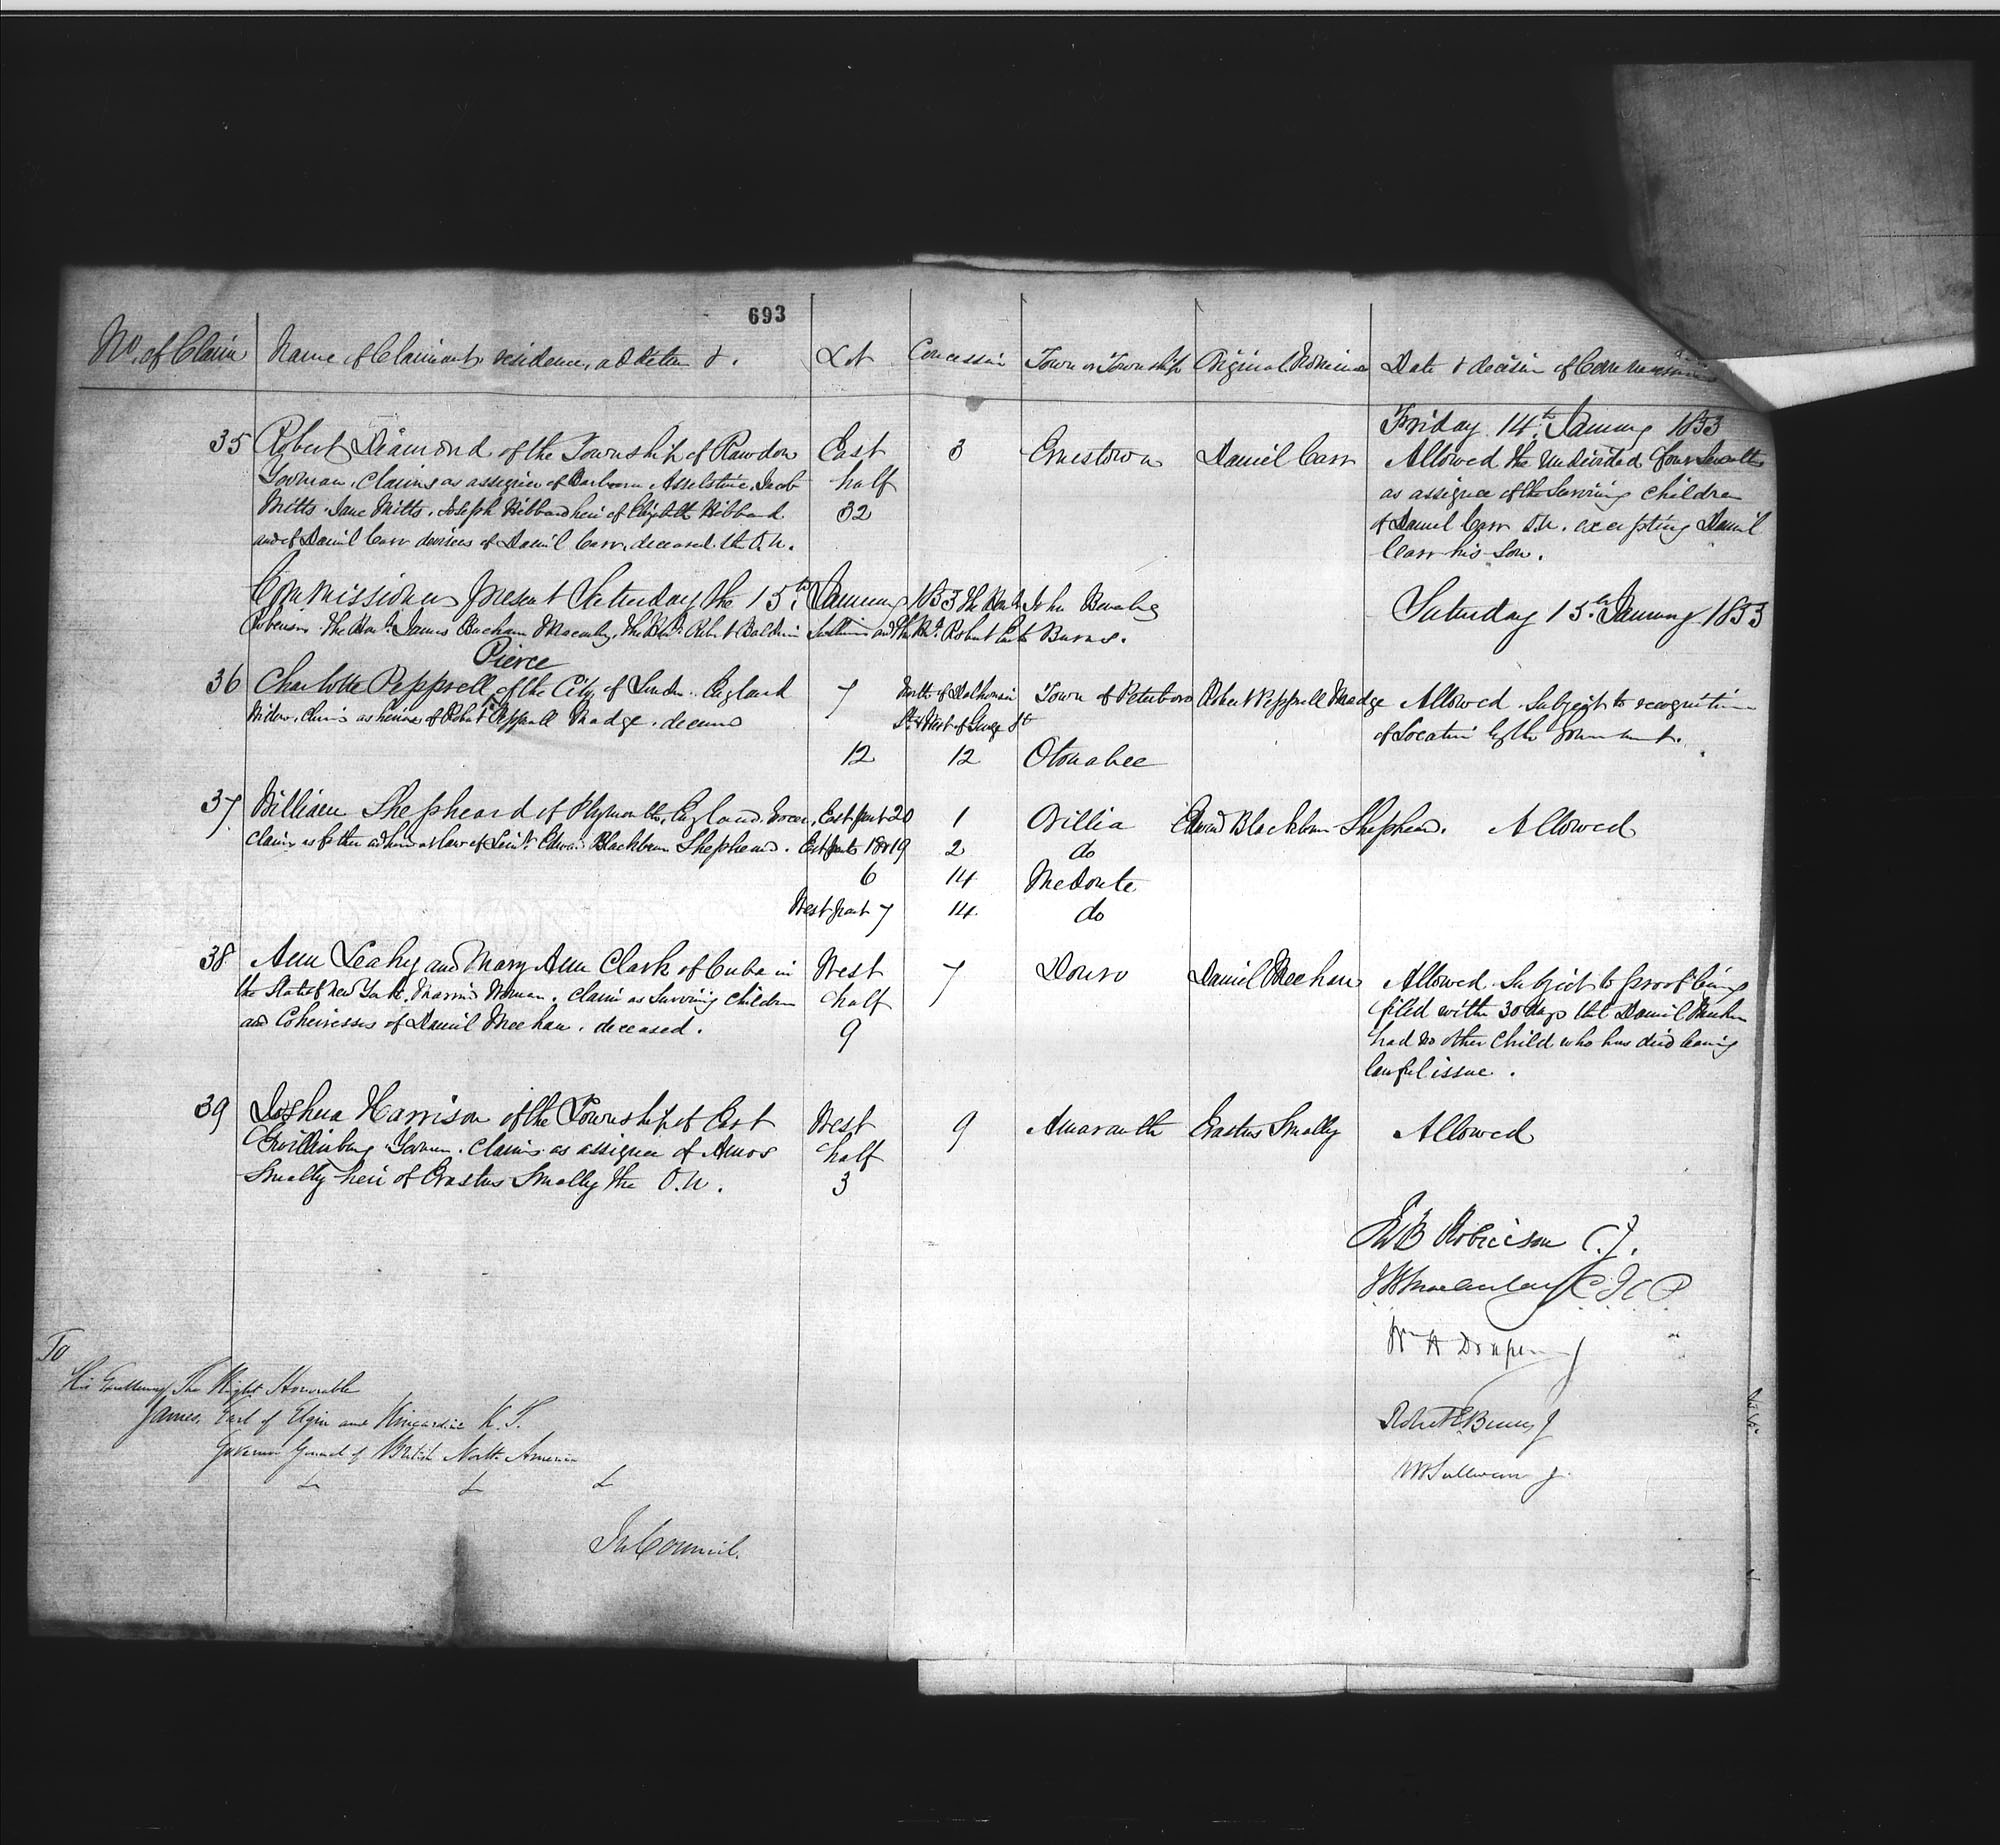 693
No. of Claim Name of Claimant, residence, addition &. Lot Concession Town or Township Original Nominee Date & decision of Commissioners
Friday 14th January 1853
35 Robert Diamond of the Township of Rawdon East 3 Ernestown Daniel Carr Allowed the undivided four Sevenths
Yeoman, Claims as assignee of Barbara Asselstine, Jacob half as assignee of the Surviving children
Mitts, Jane Mitts, Joseph Hibbard heir of Elizabeth Hibbard 32 of Daniel Carr O.N. excepting Daniel
and of Daniel Carr devisees of Daniel Carr, deceased the O.N. Carr his Son.
Commissioners present Saturday the 15th January 1853 The Honble John Beverley Saturday 15th January 1853
Robinson The Honble James Buchanan Macaulay, The Honble Robert Baldwin Sullivan and The Honble Robert Easton Burns.
Pierce
36 Charlotte Pepprell of the City of London England 7 North of Dalhousie Town of Peterboro Robert Pepprell Madge Allowed Subject to recognition
Widow, claims as heiress of Robert Pepprell Madge, deceased St & West of George St of Location by the Government.
12 12 Otonabee
37 William Shepheard of Plymouth, England, Grocer, East part 20 1 Orillia Edward Blackburn Shepheard. Allowed
Claims as father and heir at law of Lieut. Edward Blackburn Shepheard. East parts 18 & 19 2 do
6 14 Medonte
West part 7 14 do
38 Ann Leahy and Mary Ann Clark of Cuba in West 7 Douro Daniel Meehan Allowed Subject to proof being
the State of New York, Married Women, claim as Surviving Children half filed within 30 days that Daniel Meehan
and Coheiresses of Daniel Meehan, deceased. 9 had no other child who has died leaving
lawful issue.
39 Joshua Harrison of the Township of East West 9 Amaranth Erastus Smally Allowed
Gwillimbury Yeoman, Claims as assignee of Amos half
Smally heir of Erastus Smally the O.N. 3
Jno B Robinson C.J.
J B Macaulay C J C P
Wm H Draper J
Robert E Burns J
R B Sullivan J.
To
His Excellency The Right Honorable
James, Earl of Elgin and Kincardine K. T.
Governor General of British North America
& & &
In Council.